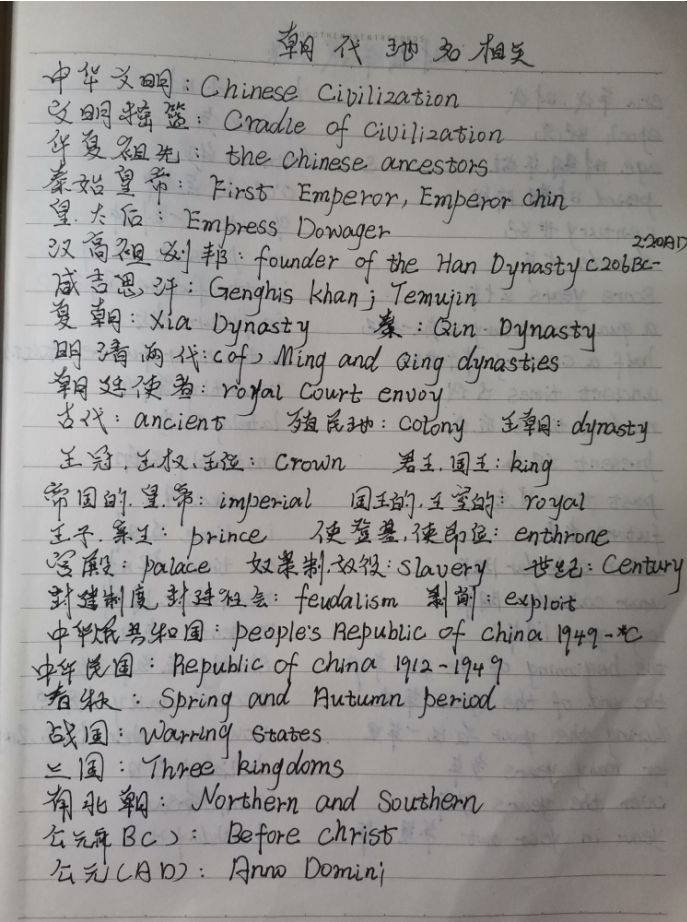 朝代地名相关
中华文明：Chinese Civilization
文明摇篮：Cradle of civilization
华夏祖先 the Chinese ancestors
秦始皇帝：First Emperor, Emperor chin
皇太后：Empress Dowager
汉高祖刘邦：founder of the Han Dynasty C206BC-220AD
成吉思汗：Genghis khan; Temujin
夏朝：Xia Dynasty 秦：Qin Dynasty
明清两代：(of) Ming and Qing dynasties
朝廷使者：royal Court envoy
古代：ancient 殖民地：Colony 王朝：dynasty
王冠.王权.王位：Crown 君主.国王：king
帝国的.皇帝：imperial 国王的.王室的：royal
王子.亲王：prince 使登基,使即位：enthrone
宫殿：palace 奴隶制.奴役：slavery 世纪：Century
封建制度 封建社会：feudalism 剥削：exploit
中华民共和国：people's Republic of China 1949-
中华民国：Republic of china 1912-1949
春秋：Spring and Autumn period
战国：Warring States
三国：Three kingdoms
南北朝：Northern and Southern
公元前BC)：Before christ
公元(AD)：Anno Domini